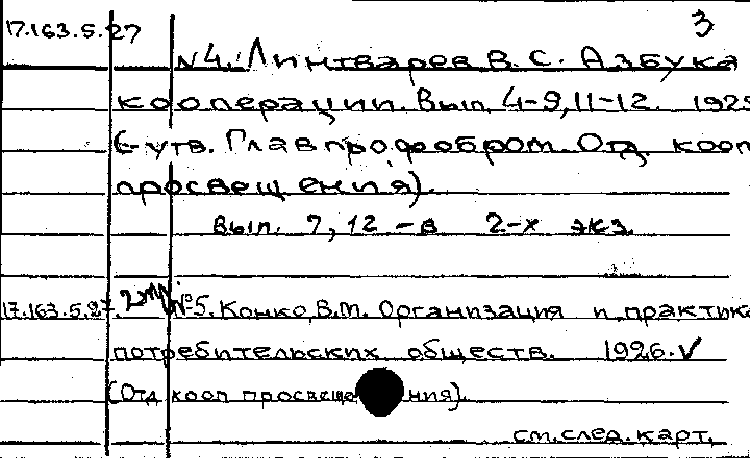 3
17.163.5.27
№4. Линтварев В.С. Азбука
кооперации. Вып. 4-9, 11-12. 1925
(-утв. Главпрофобром. Отд. кооп
просвещения).
Вып. 7, 12 - в 2-х экз.
17.163.5.27. №5. Конко, В.М. Организация и практика
потребительских обществ. 1926.✓
(Отд кооп просвеще ния).
см. след. карт.